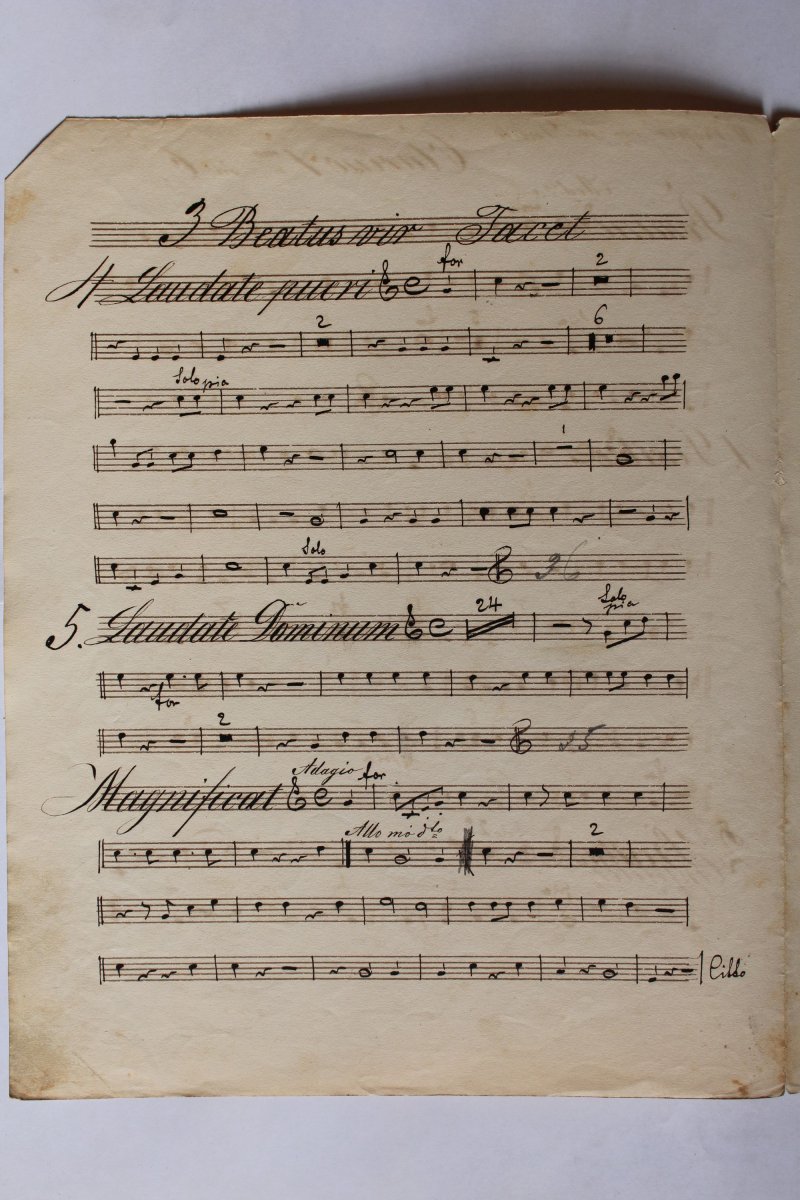 3 Beatus vir Tacet
4 Laudate pueri for 2
2 6
Solo pia
1
Solo 36
5. Laudate Dominum 24 Solo pia
for
2
Magnificat Adagio for
Allo 2